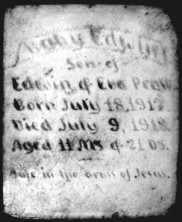 Baby Edwin
Son of
Edwin & Eva
Born July 18, 1917
Died July 9, 1918
Aged 11 Ms & 21 Ds.
Safe in the arms of Jesus.